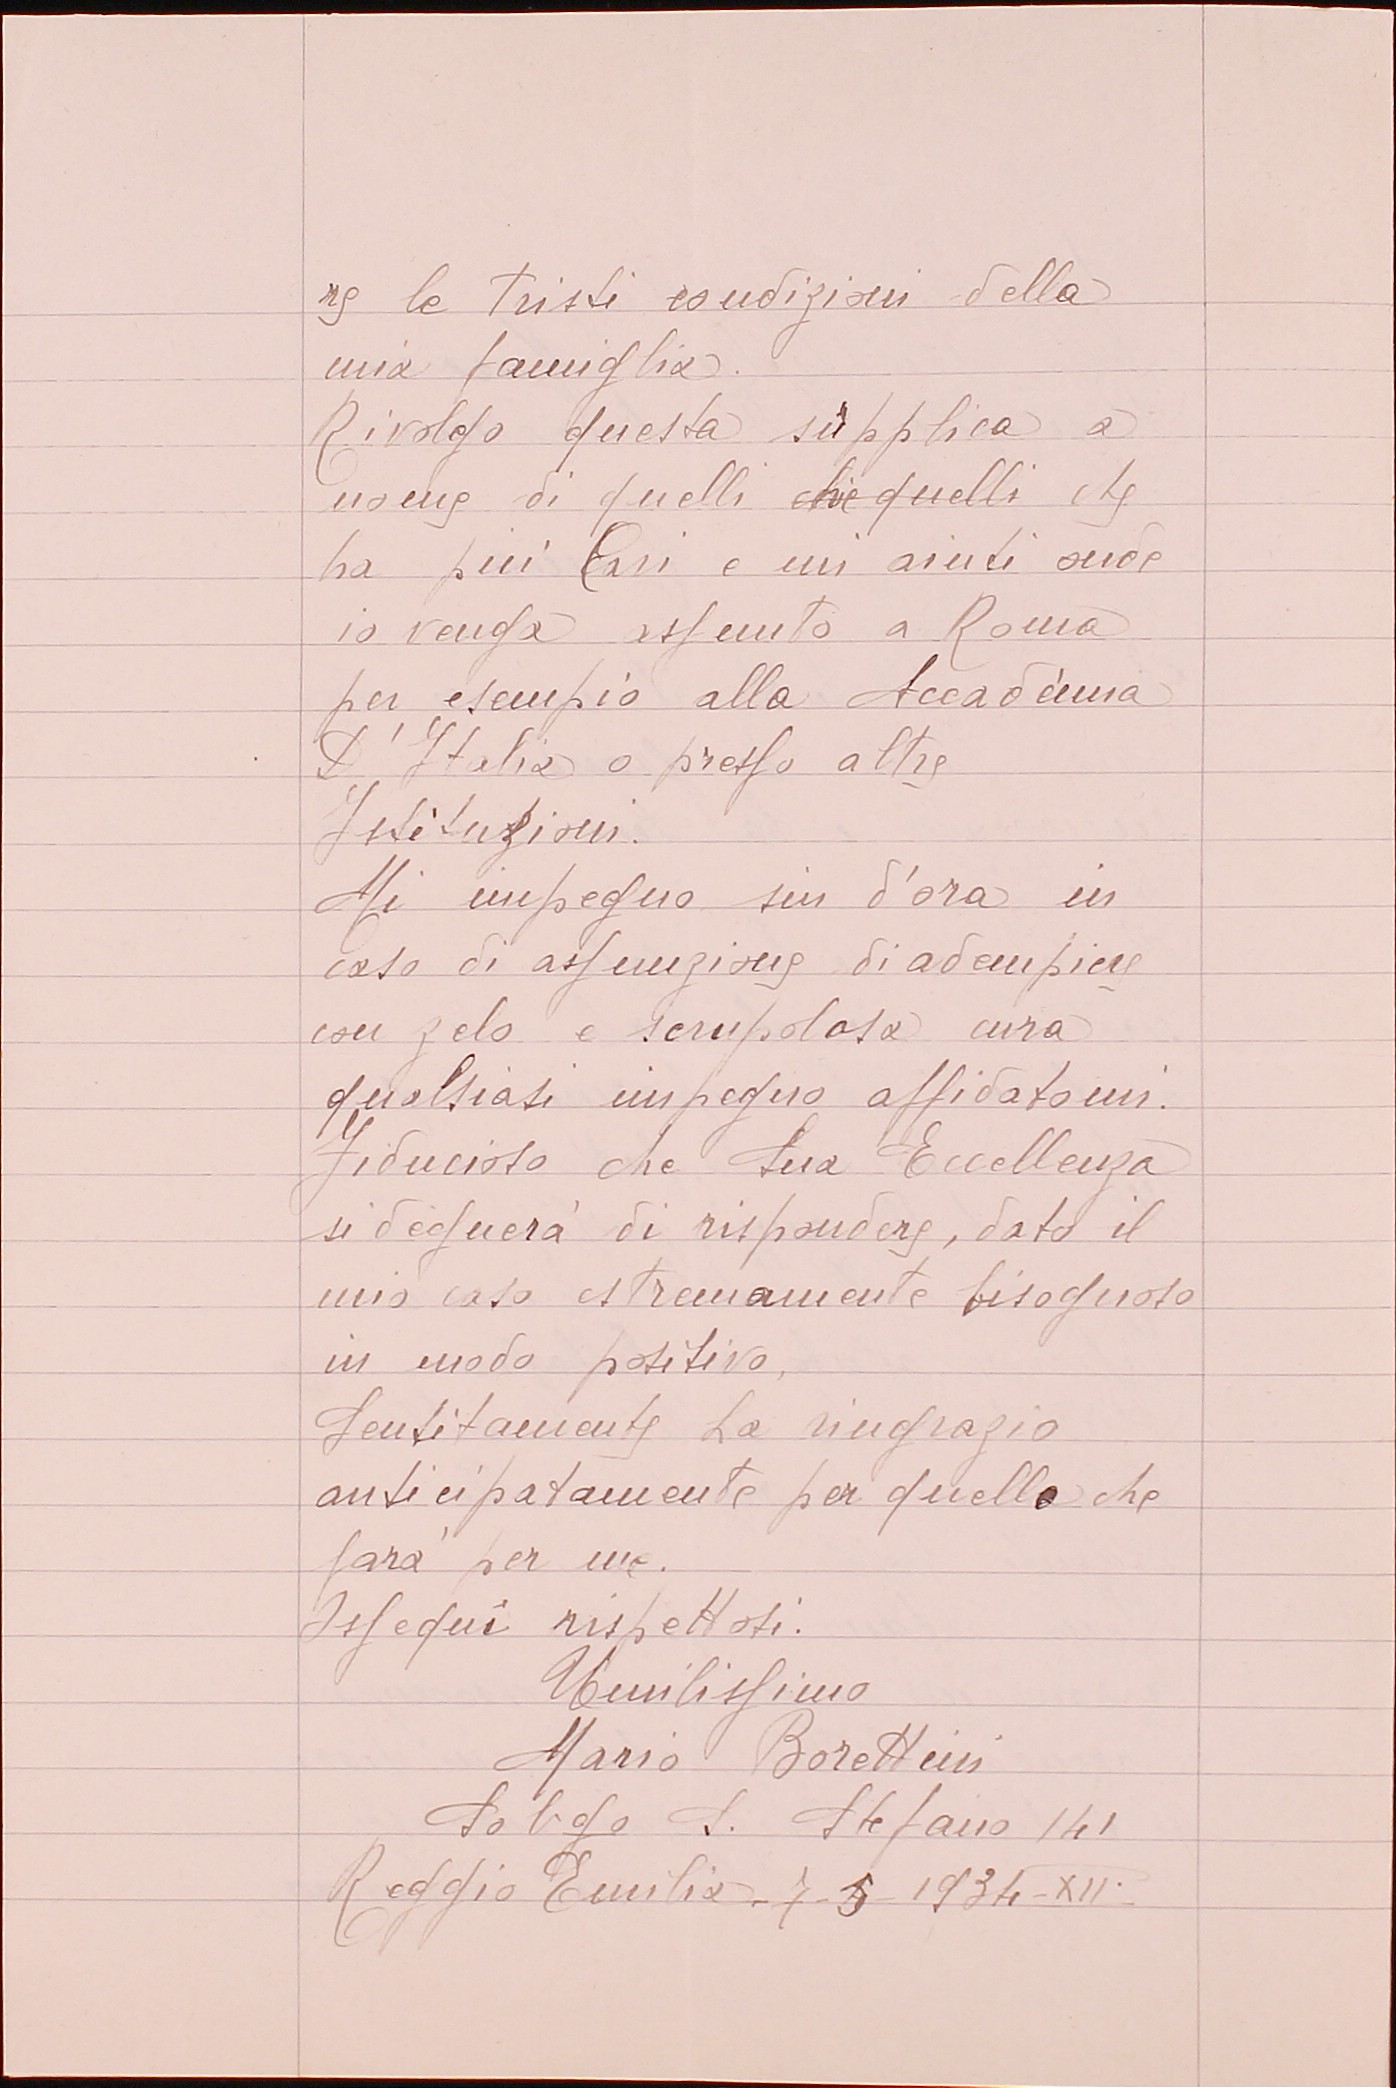 re le tristi condizioni della
mia famiglia.
Rivolgo questa supplica a
nome di quelli che quelli che
ha più Cari e mi aiuti onde
io venga assunto a Roma
per esempio alla Accadémia
D'Italia o presso altre
Istituzioni.
Mi impegno sin d'ora in
caso di assunzione di adempiere
con zelo e scrupolosa cura
qualsiasi impegno affidatomi.
Fiducioso che Sua Eccellenza
si degnerà di rispondere, dato il
mio caso estremamente bisognoso
in modo positivo,
Sentitamente La ringrazio
anticipatamente per quello che
farà per me.
Ossequi rispettosi.
Umilissimo
Mario Borettini
S. Stefano 141
Reggio Emilia - 7 - 5 - 1934 - XII.